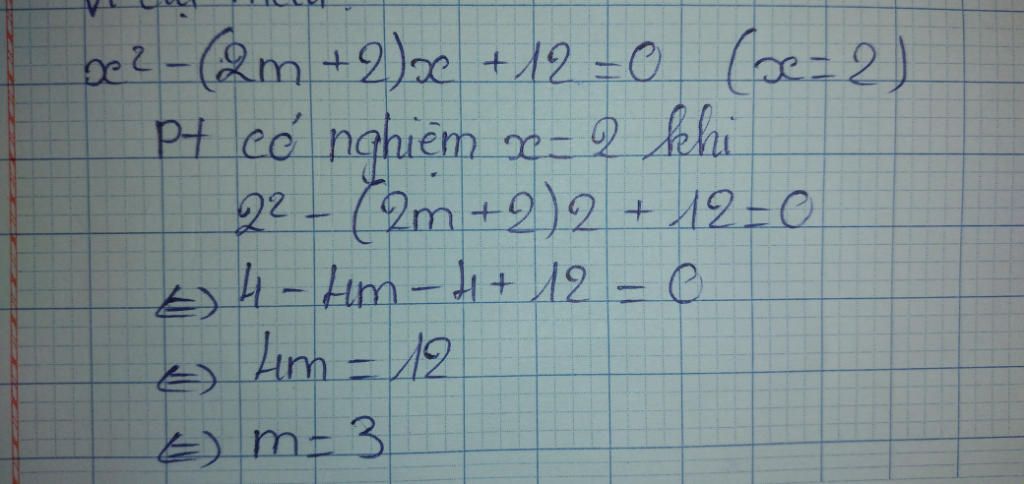 x² - (2m + 2)x + 12 = 0 (x = 2)
Pt có nghiệm x = 2 khi
2² - (2m + 2)2 + 12 = 0
⇔ 4 - 4m - 4 + 12 = 0
⇔ 4m = 12
⇔ m = 3